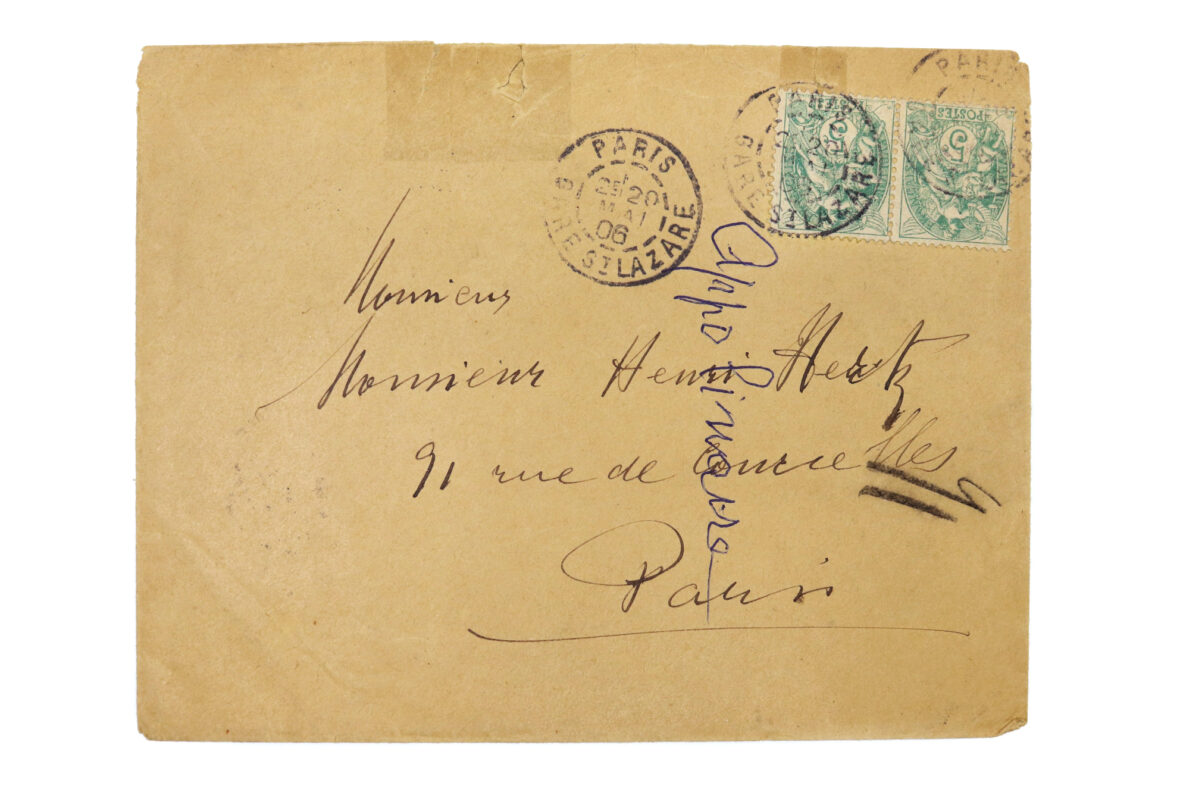 PARIS
25 20
MAI
06
GARE ST LAZARE
PARIS
GARE ST LAZARE
PARIS
POSTES
5
5
Monsieur
Monsieur Henri Hertz
91 rue de Courcelles
Paris
Appolinaire